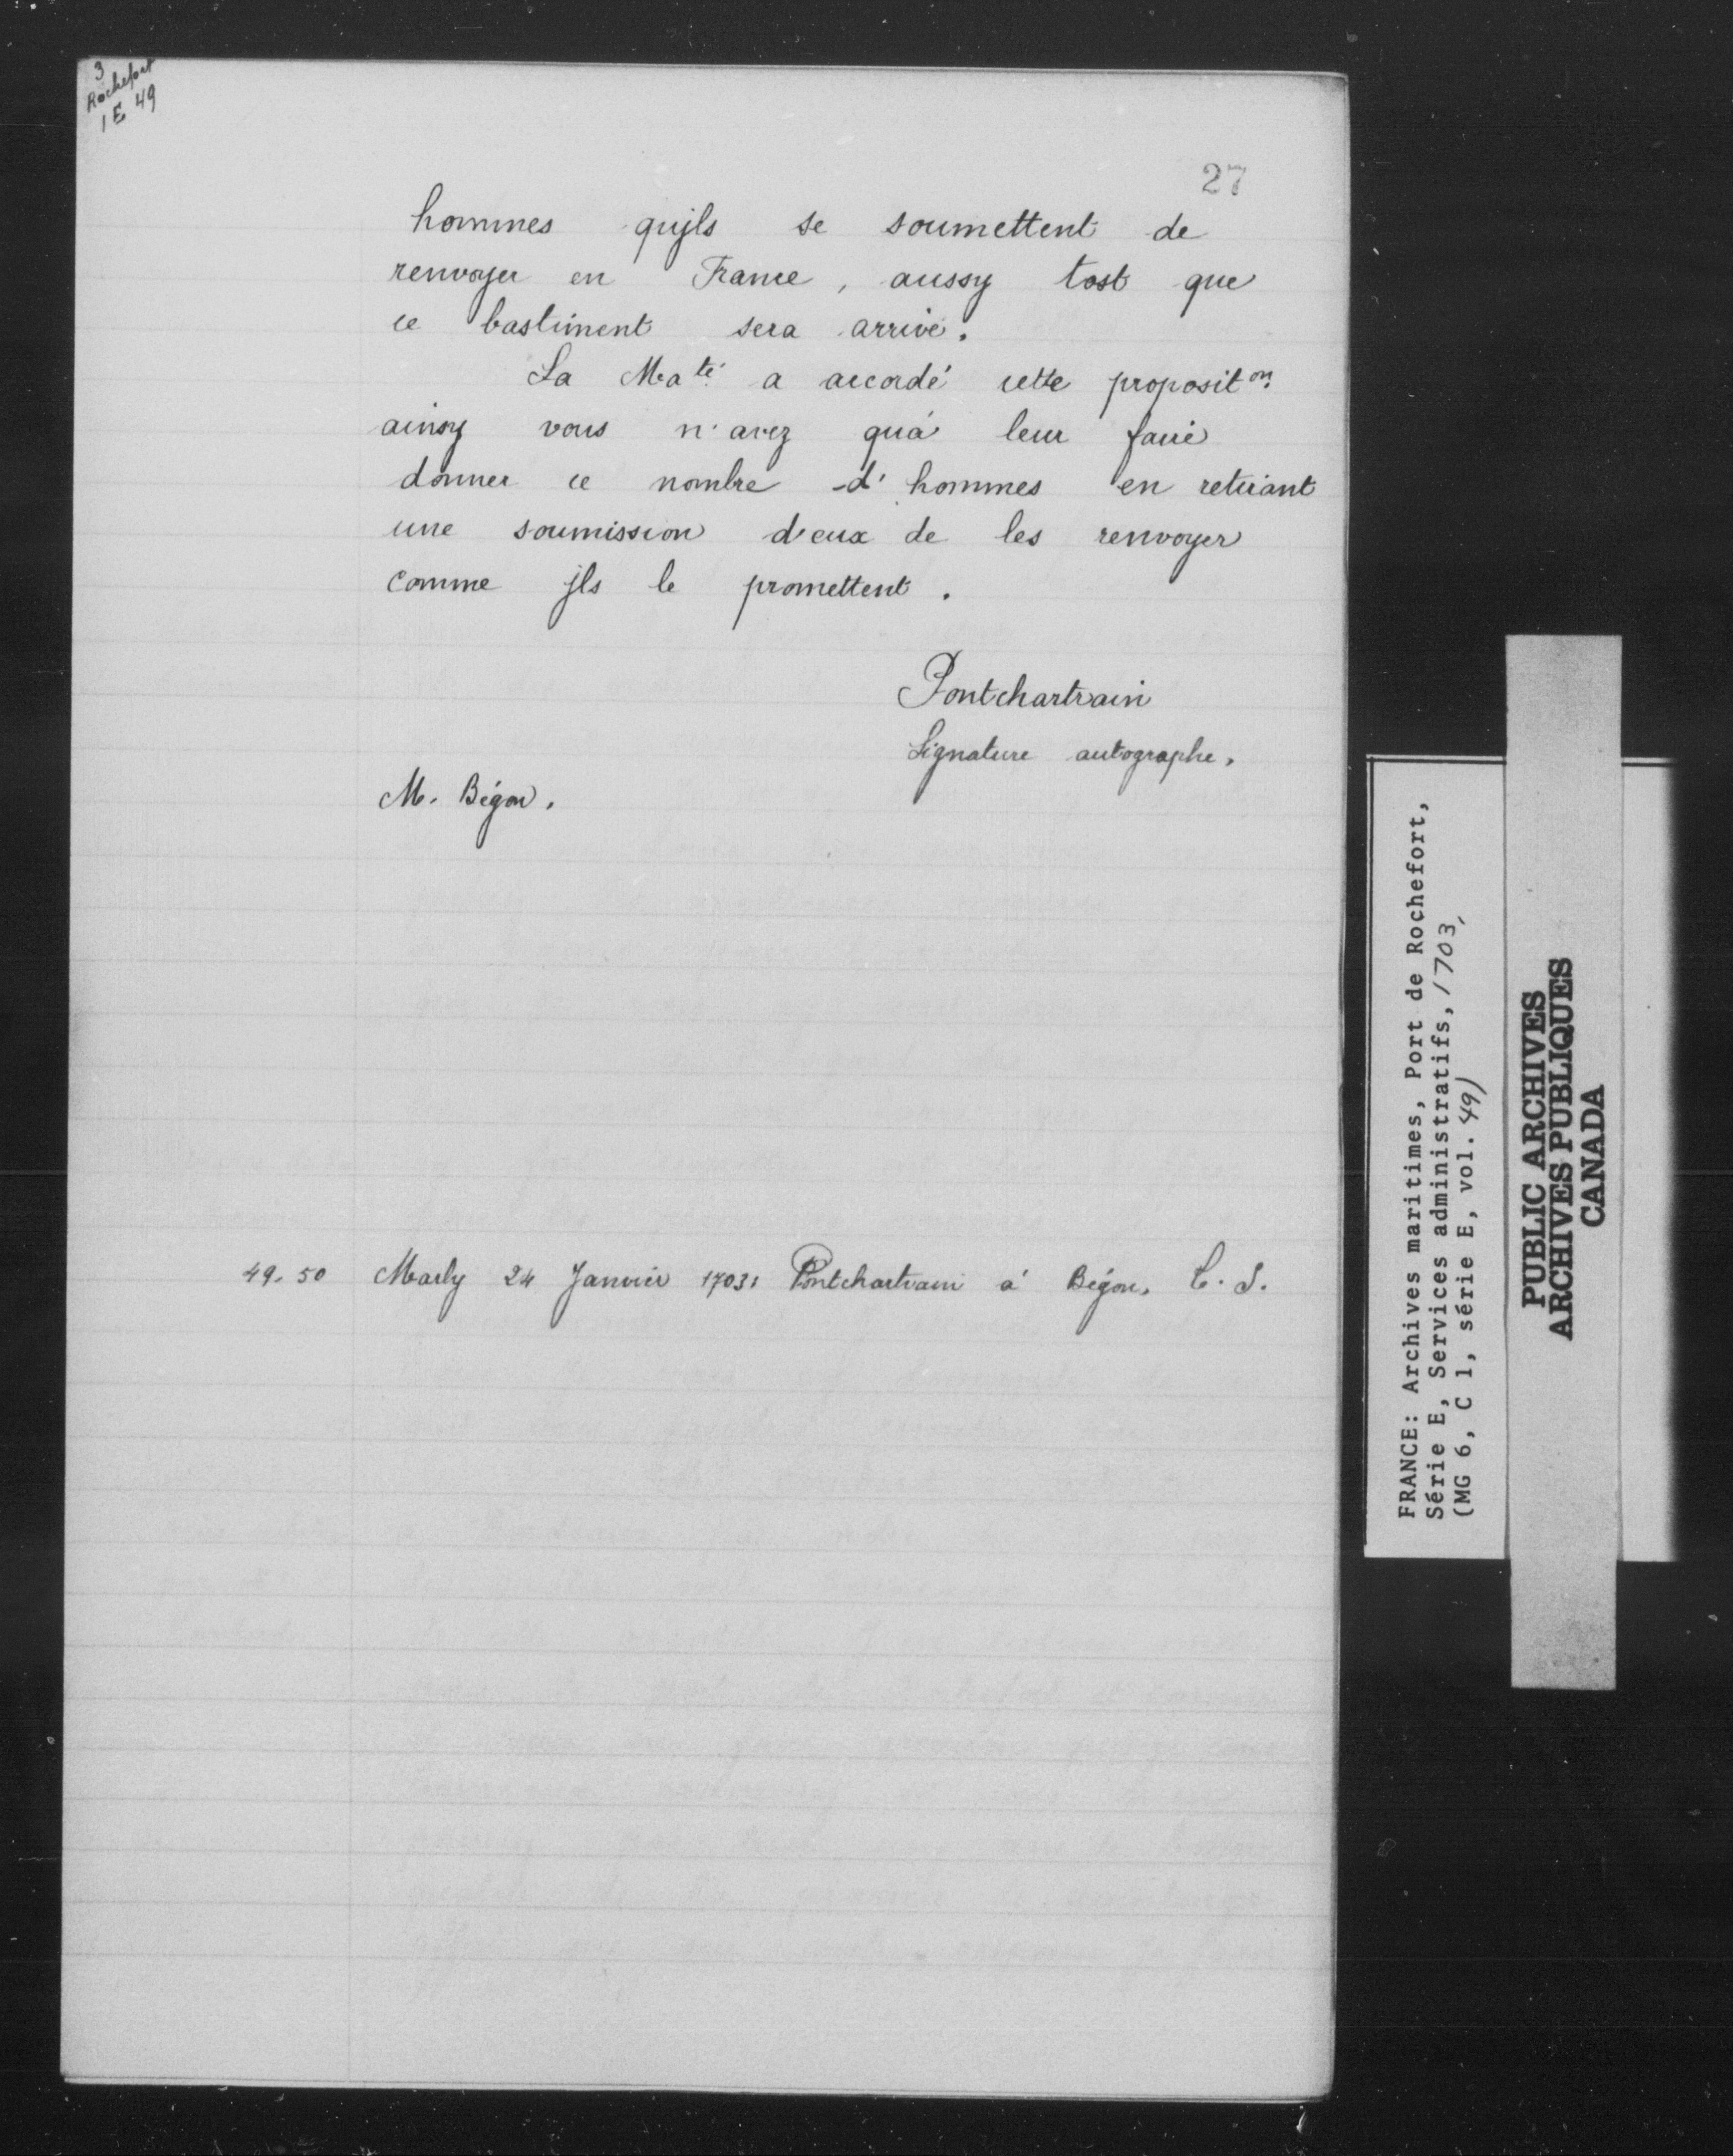 3
Rochefort
1 E 49
27
hommes qujls se soumettent de
renvoyer en France, aussy tost que
ce bastiment sera arrivé.
La Maté a accordé cette propositon
ainsy vous n'avez qu'à leur faire
donner ce nombre d'hommes en retirant
une soumission d'eux de les renvoyer
comme jls le promettent.
Pontchartrain
Signature autographe.
M. Bégon.
49-50 Marly 24 Janvier 1703. Pontchartrain à Bégon. C. S.
FRANCE: Archives maritimes, Port de Rochefort,
Série E, Services administratifs, 1703,
(MG 6, C 1, série E, vol. 49)
PUBLIC ARCHIVES
ARCHIVES PUBLIQUES
CANADA